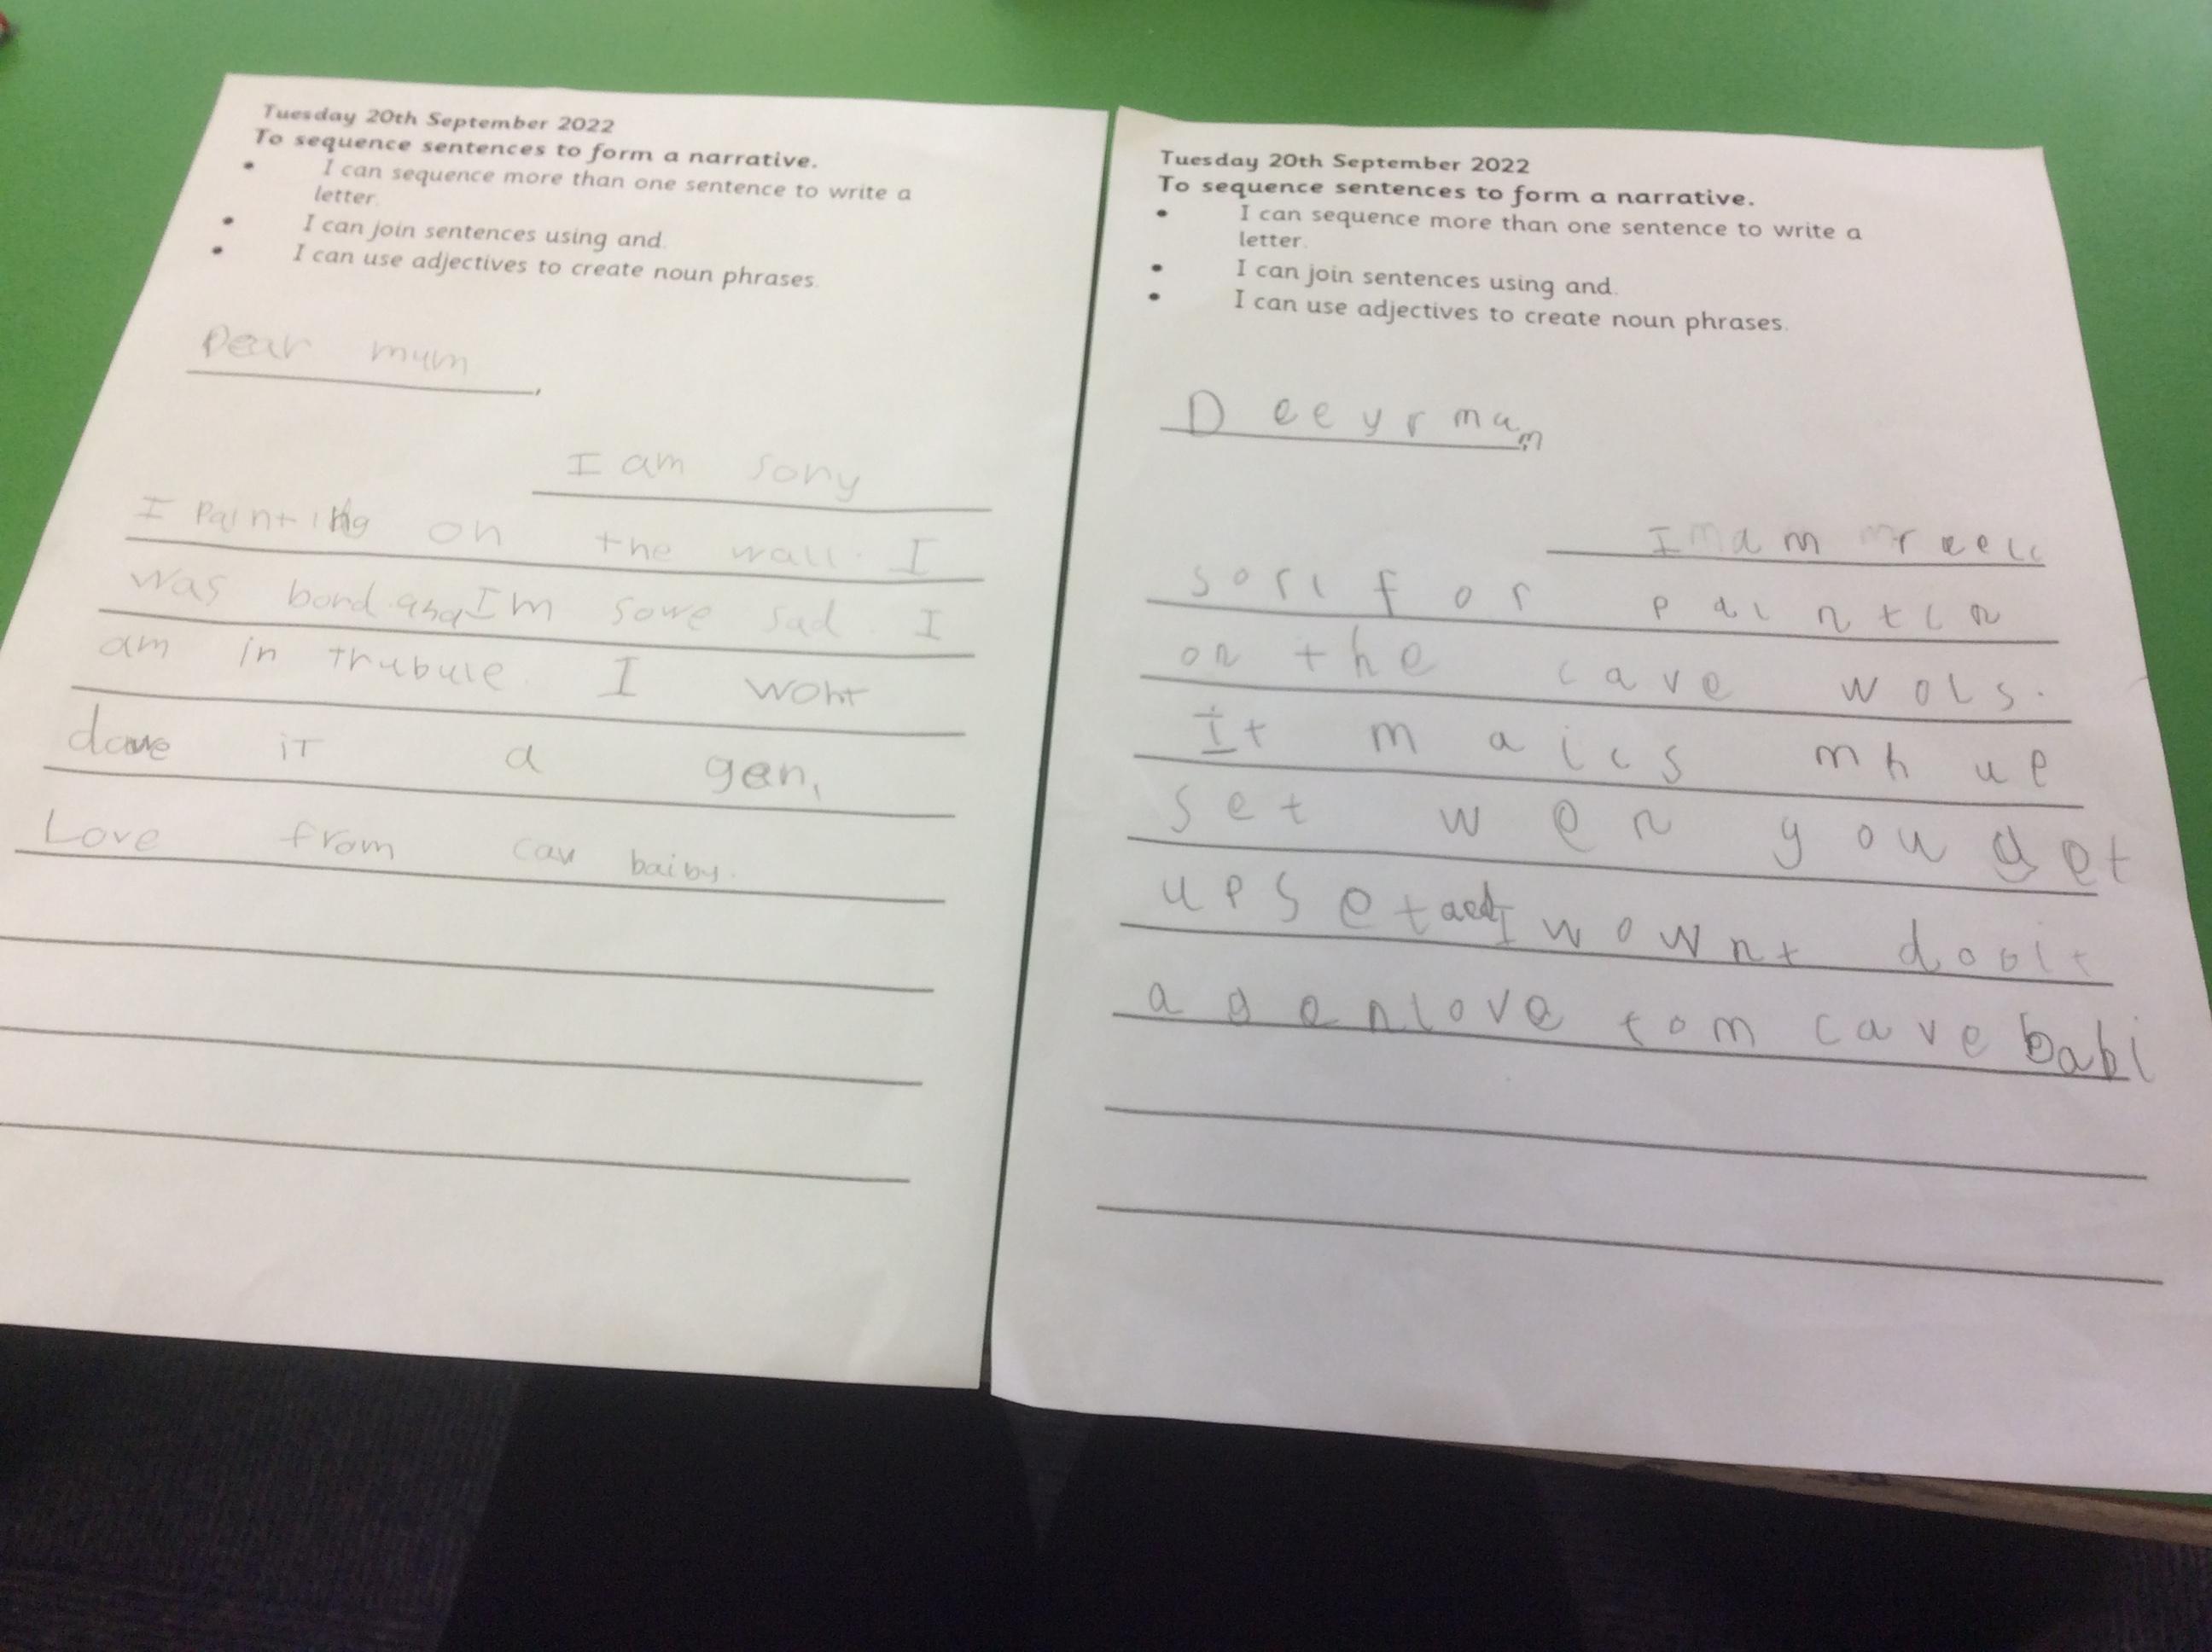 Tuesday 20th September 2022
To sequence sentences to form a narrative.
• I can sequence more than one sentence to write a
letter.
• I can join sentences using and.
• I can use adjectives to create noun phrases.
Dear mum,
I am sory
I painting on the wall. I
was bord and Im sowe sad. I
am in trubule. I wont
dowe it a gen,
Love from cav baiby.
Tuesday 20th September 2022
To sequence sentences to form a narrative.
• I can sequence more than one sentence to write a
letter.
• I can join sentences using and.
• I can use adjectives to create noun phrases.
Deeyr mum
I am reeli
sori for paintin
on the cave wols.
It maics mh up
set wen you get
upset and I wownt dooit
agenlove tom cave babi